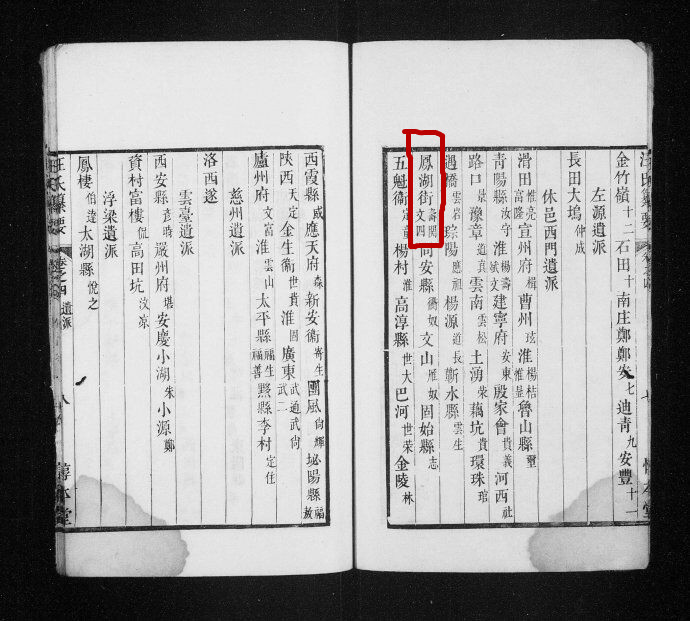 金竹嶺十二石田十南庄鄭鄭安七迪青九安豐十一
左源遺派
長田大塢仲成
休邑西門遺派
滑田惟亮富隆宣州府楫曹州玹淮楊桔惟量魯山縣壐
青陽縣汝守淮楊壽斌文建寧府安東殷家會貴義河西社
路口景豫章道真雲南雲松土湧榮藕坑貴環珠琯
遇橋雲岩琮陽應祖楊源道長蘄水縣雲生
鳳湖街壽閏文四同安縣衛奴文山雁奴固始縣志
五魁衛定童楊村淮高淳縣世大巴河世荣金陵林
汪氏纂要
西霞縣威應天府森新安衛寄生團風尙輝埉陽縣福赦
陜西天定金生衛世貴淮固廣東武通武尙武二
廬州府文富淮雲山太平縣福生福善黟縣李村定住
慈州遺派
洛西遂
雲臺遺派
西安縣彥時嚴州府堪安慶小湖朱小源鄭
資村富樓侃高田坑汶凉
浮梁遺派
鳳棲伯達太湖縣悅之
汪氏纂要 卷之四 遺派 八